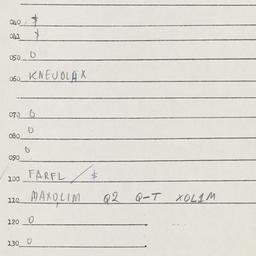 040 $
042
050 0
060 KNEUOLAX
070 0
080 0
090 0
100 FARFL / $
110 MAXOLIM Q2 Q-T XOL1M
120 0
130 0